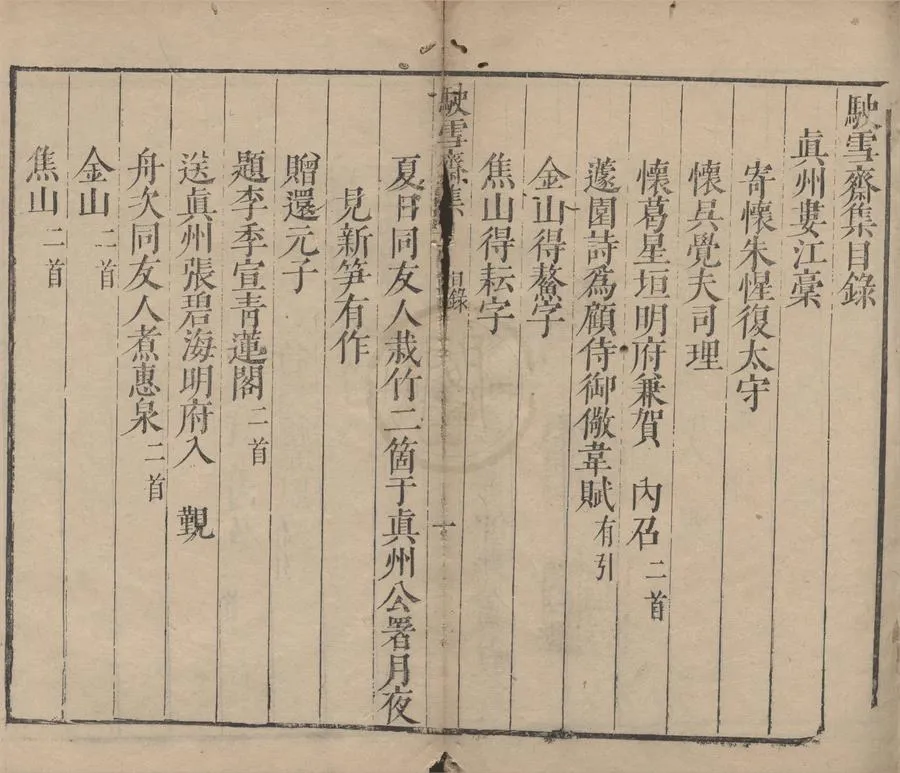 駛雪齋集目錄
真州婁江稾
寄懷朱惺復太守
懷吳覺夫司理
懷葛星垣明府兼賀　內召二首
蘧園詩爲顧侍御儆韋賦有引
金山得鰲字
焦山得耘字
駛雪齋集　目錄　一
夏日同友人栽竹二箇于眞州公署月夜
見新笋有作
贈還元子
題李季宣靑蓮閣二首
送眞州張碧海明府入　覲
舟次同友人煮惠泉二首
金山二首
焦山二首